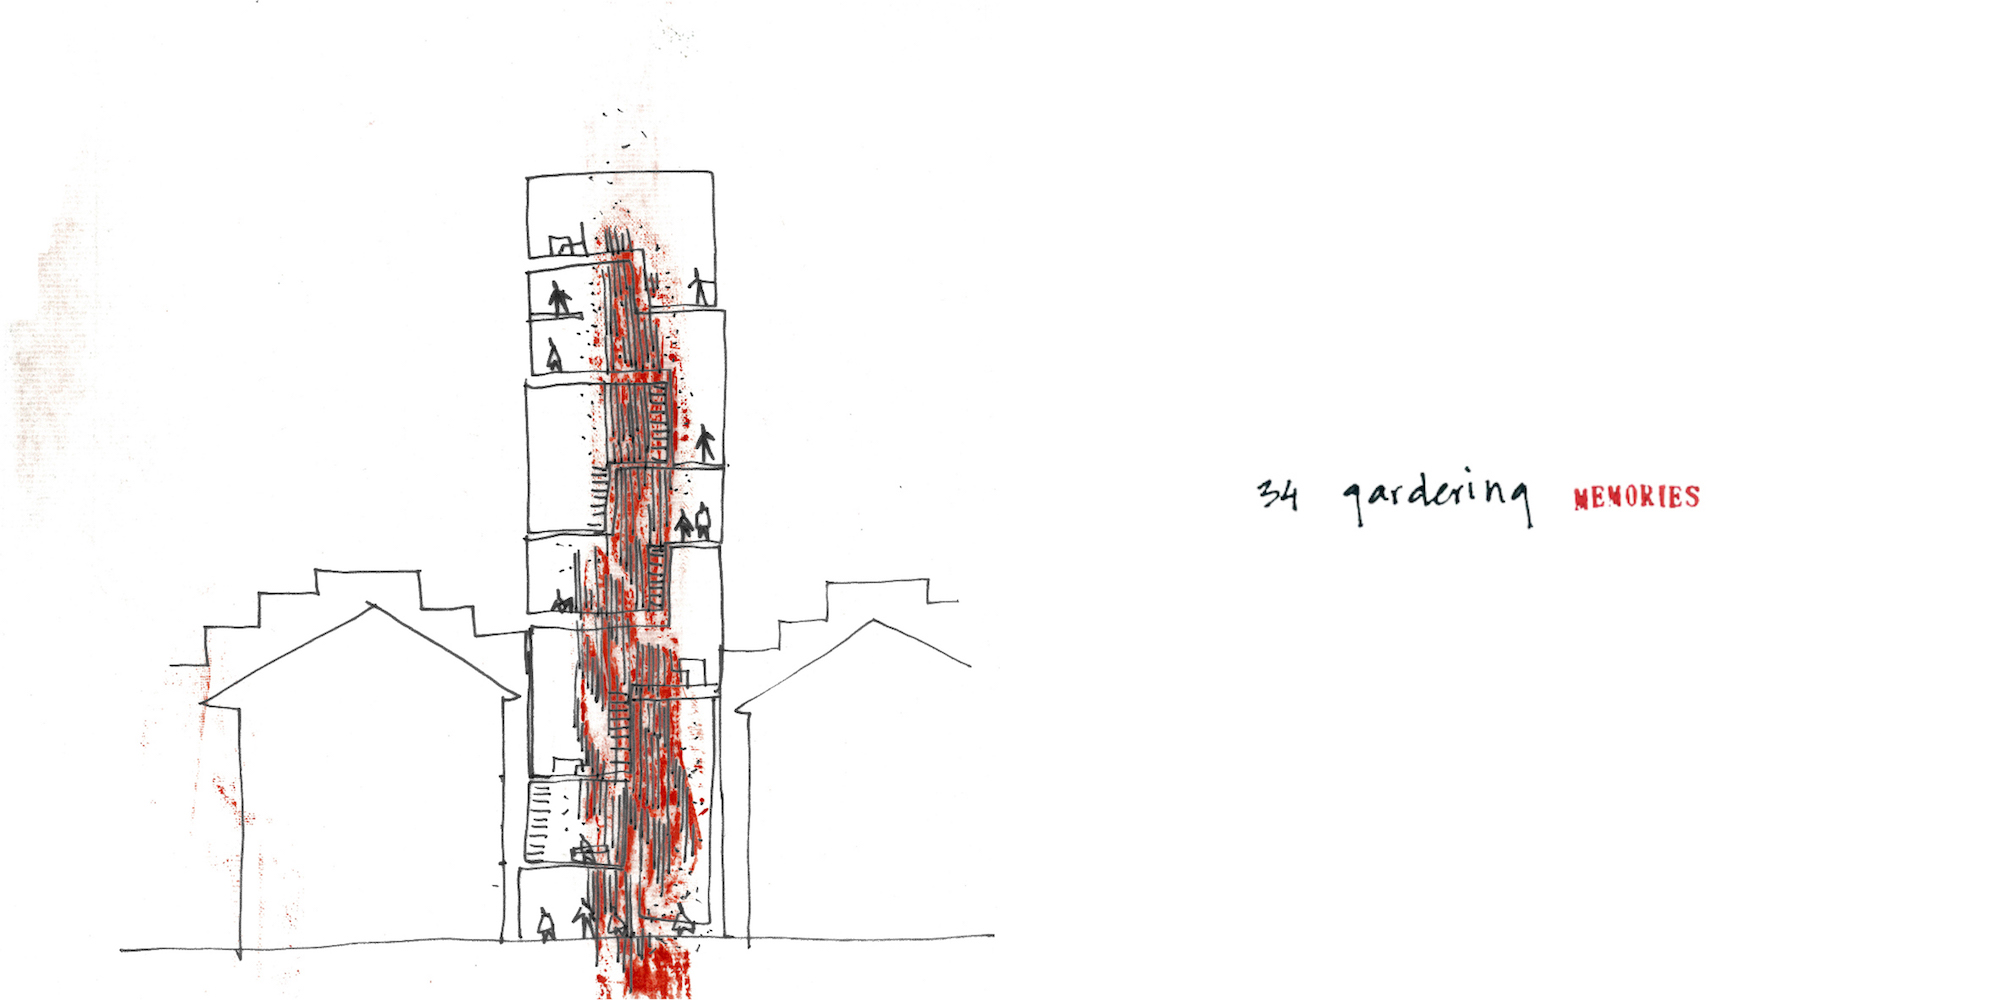 34 gardering MEMORIES